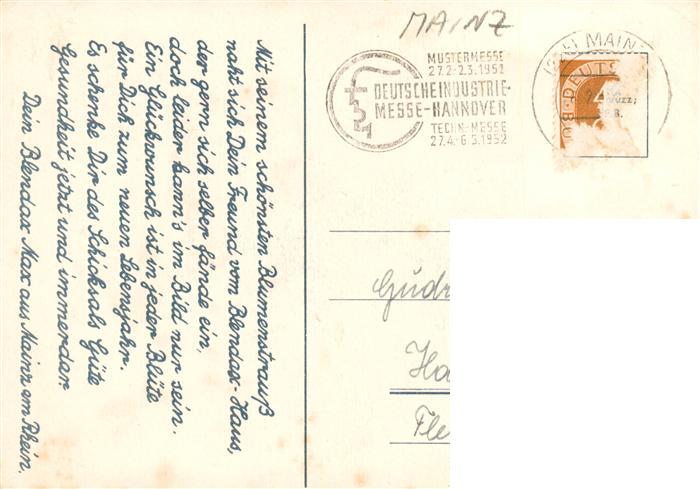 Mit seinem schönsten Blumenstrauß
naht sich Dein Freund vom Blendax-Haus,
der gern sich selber fände ein,
doch leider kann's im Bild nur sein.
Ein Glückwunsch ist in jeder Blüte
für Dich zum neuen Lebensjahr.
Es schenke Dir des Schicksals Güte
Gesundheit jetzt und immerdar.
Dein Blendax Max aus Mainz am Rhein.
MAINZ
MUSTERMESSE
27.2-2.3.1952
DEUTSCHE INDUSTRIE-
MESSE-HANNOVER
TECHN-MESSE
27.4.-6.5.1952
MAIN
DEUTS
Gud
Ha
Fle